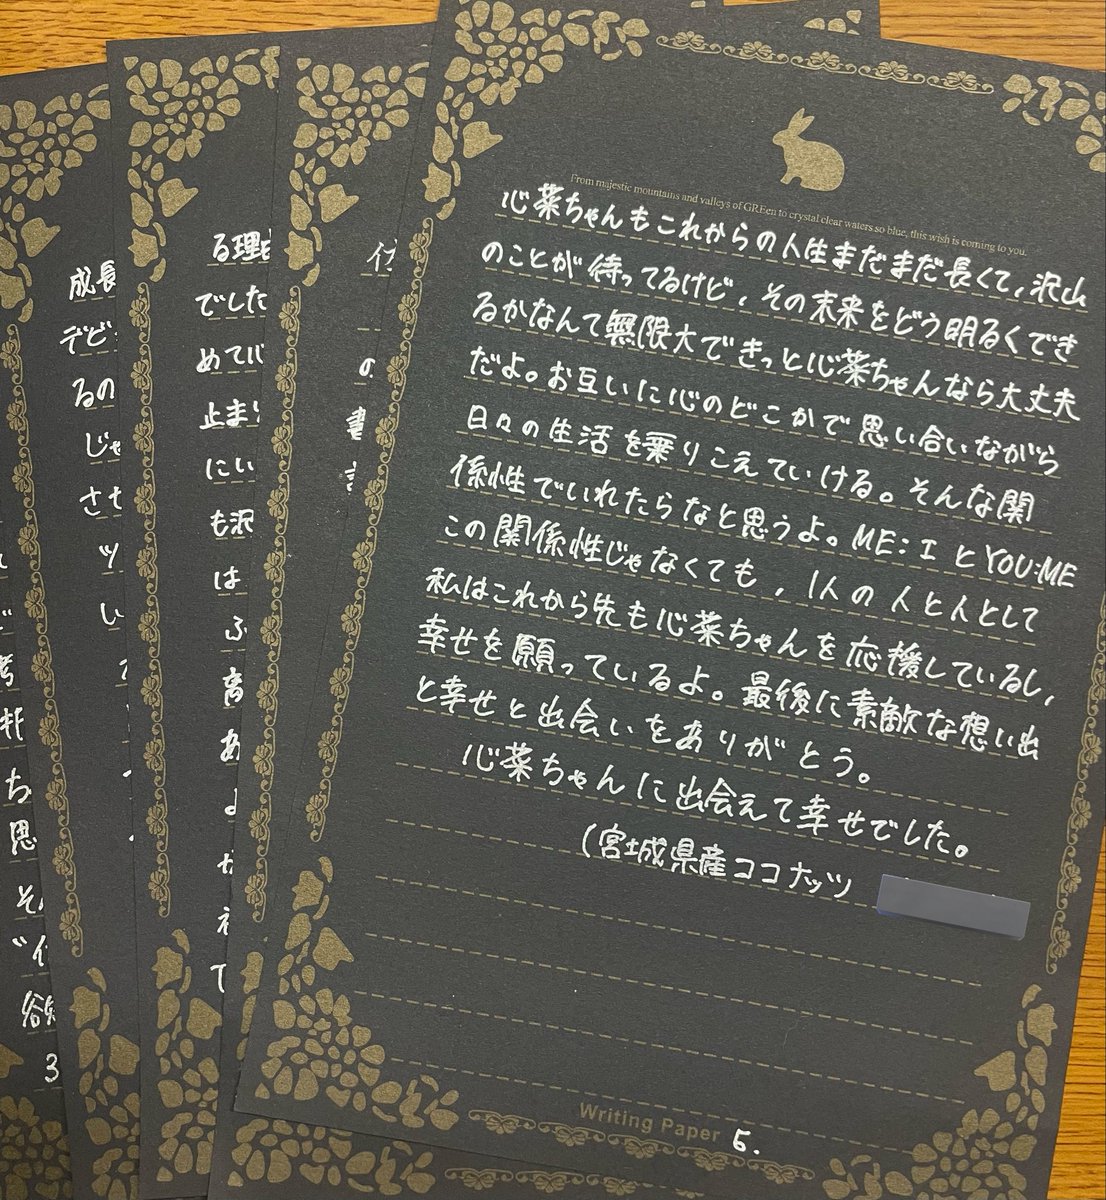 成長
デビ
るの
じゃ
させ
ツ
い
る理由
でした
めて心
止まり
にい
も沢
は
ふ
あ
よ
て
の
From majestic mountains and valleys of GREen to crystal clear waters so blue, this wish is coming to you.
心菜ちゃんもこれからの人生まだまだ長くて,沢山
のことが待ってるけど,その未来をどう明るくでき
るかなんて無限大できっと心菜ちゃんなら大丈夫
だよ。お互いに心のどこかで思い合いながら
日々の生活を乗りこえていける。そんな関
係性でいれたらなと思うよ。ME:IとYOU:ME
この関係性じゃなくても,1人の人と人として
私はこれから先も心菜ちゃんを応援しているし,
幸せを願っているよ。最後に素敵な想い出
と幸せと出会いをありがとう。
心菜ちゃんに出会えて幸せでした。
(宮城県産ココナッツ
Writing Paper 5.